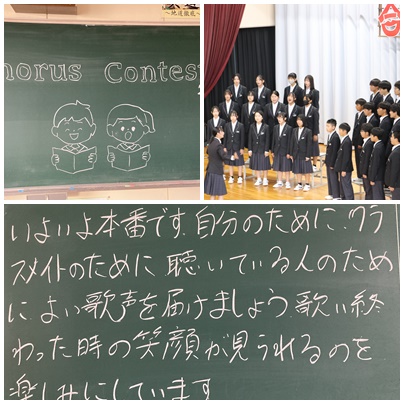 〜地道徹底〜
horus Contes
いよいよ本番です。自分のために、クラ
スメイトのために、聴いている人のため
に、よい歌声を届けましょう。歌い終
わった時の笑顔が見られるのを
楽しみにしています